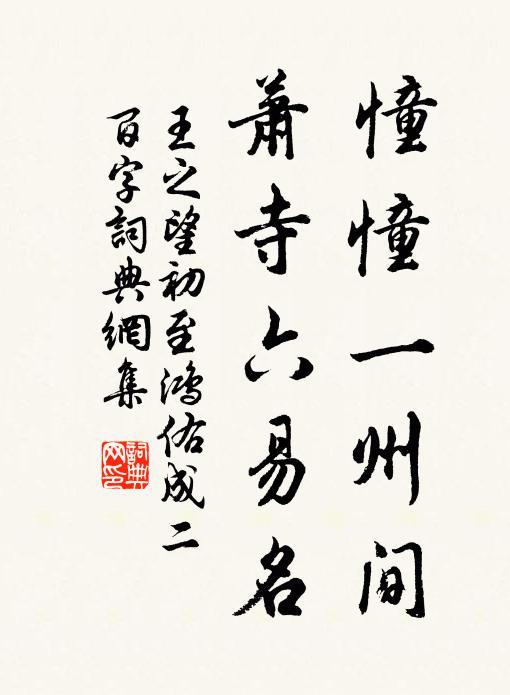 憧憧一州間
蕭寺六易名
王之望初至鴻佑成二
百字詞典網集
詞典
网印